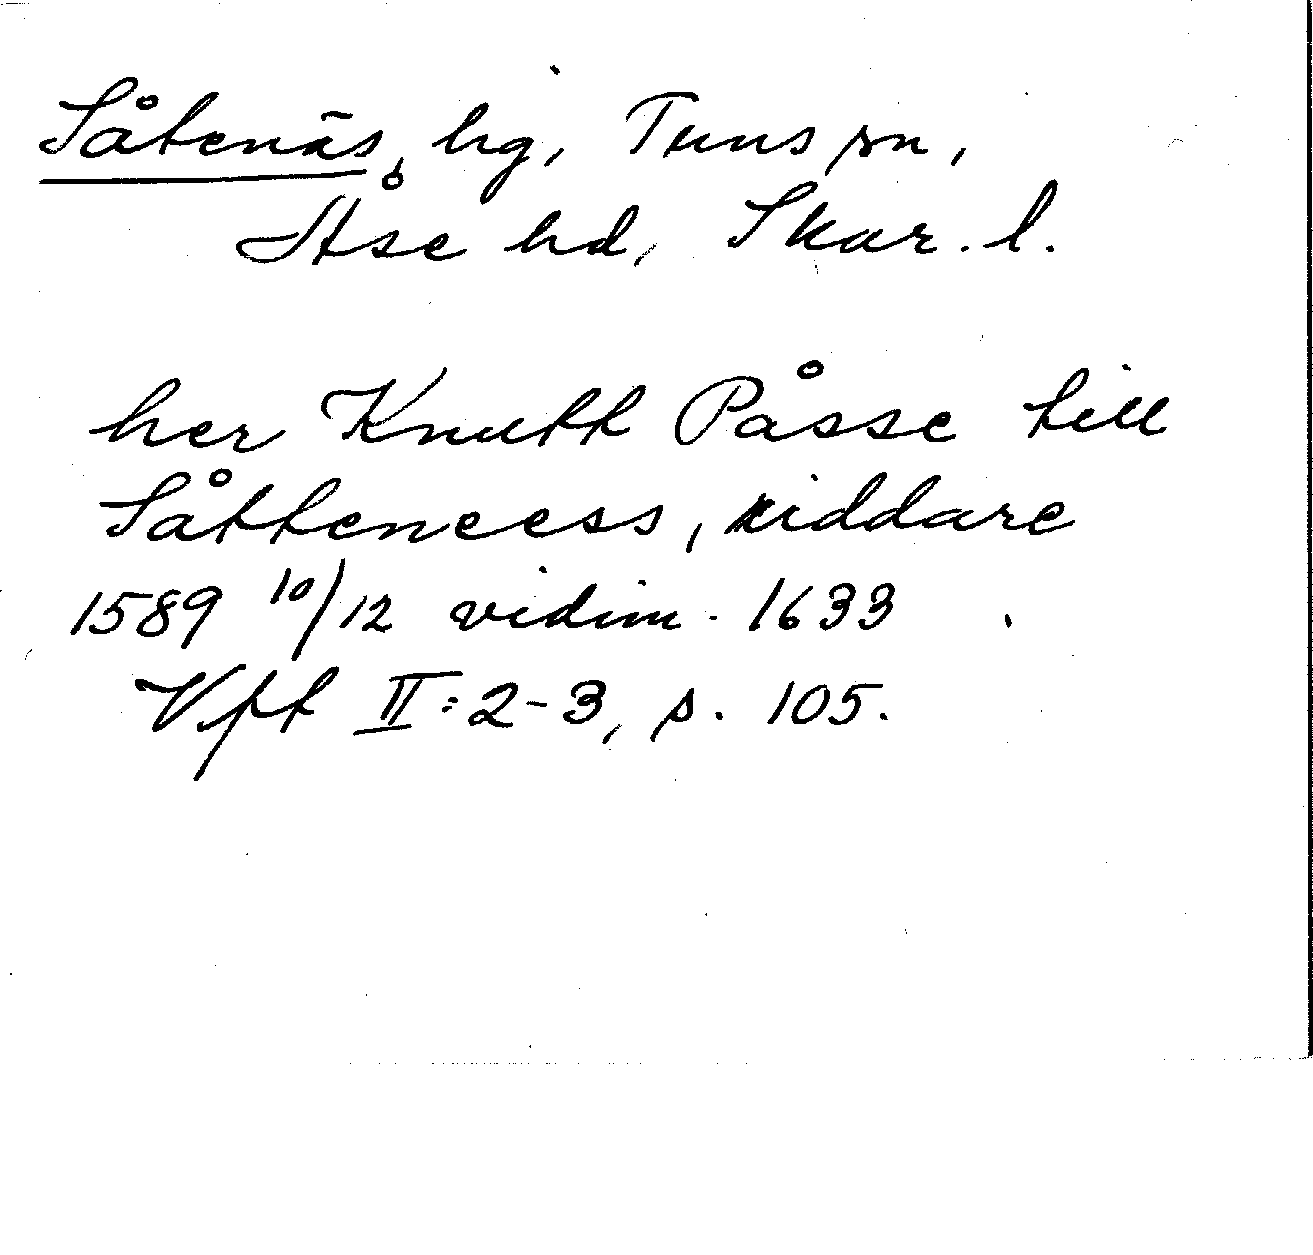 Såtenäs, hg, Tuns sn,
Åse hd, Skar. l.
her Knutt Påsse till
Såtteneess, riddare
1589 10/12 vidim. 1633
Vft II:2-3, s. 105.